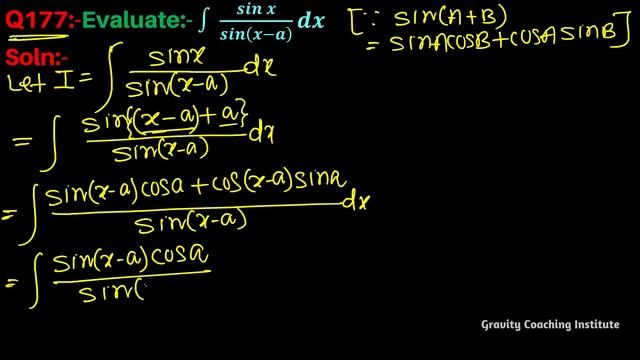 Q177:-Evaluate:- ∫ sin x / sin(x−a) dx
[∵ sin(A+B)
= sinAcosB+cosAsinB]
Soln:-
Let I = ∫ sinx / sin(x-a) dx
= ∫ sin{(x-a)+a} / sin(x-a) dx
= ∫ sin(x-a)cosa+cos(x-a)sina / sin(x-a) dx
= ∫ sin(x-a)cosa / sin(
Gravity Coaching Institute